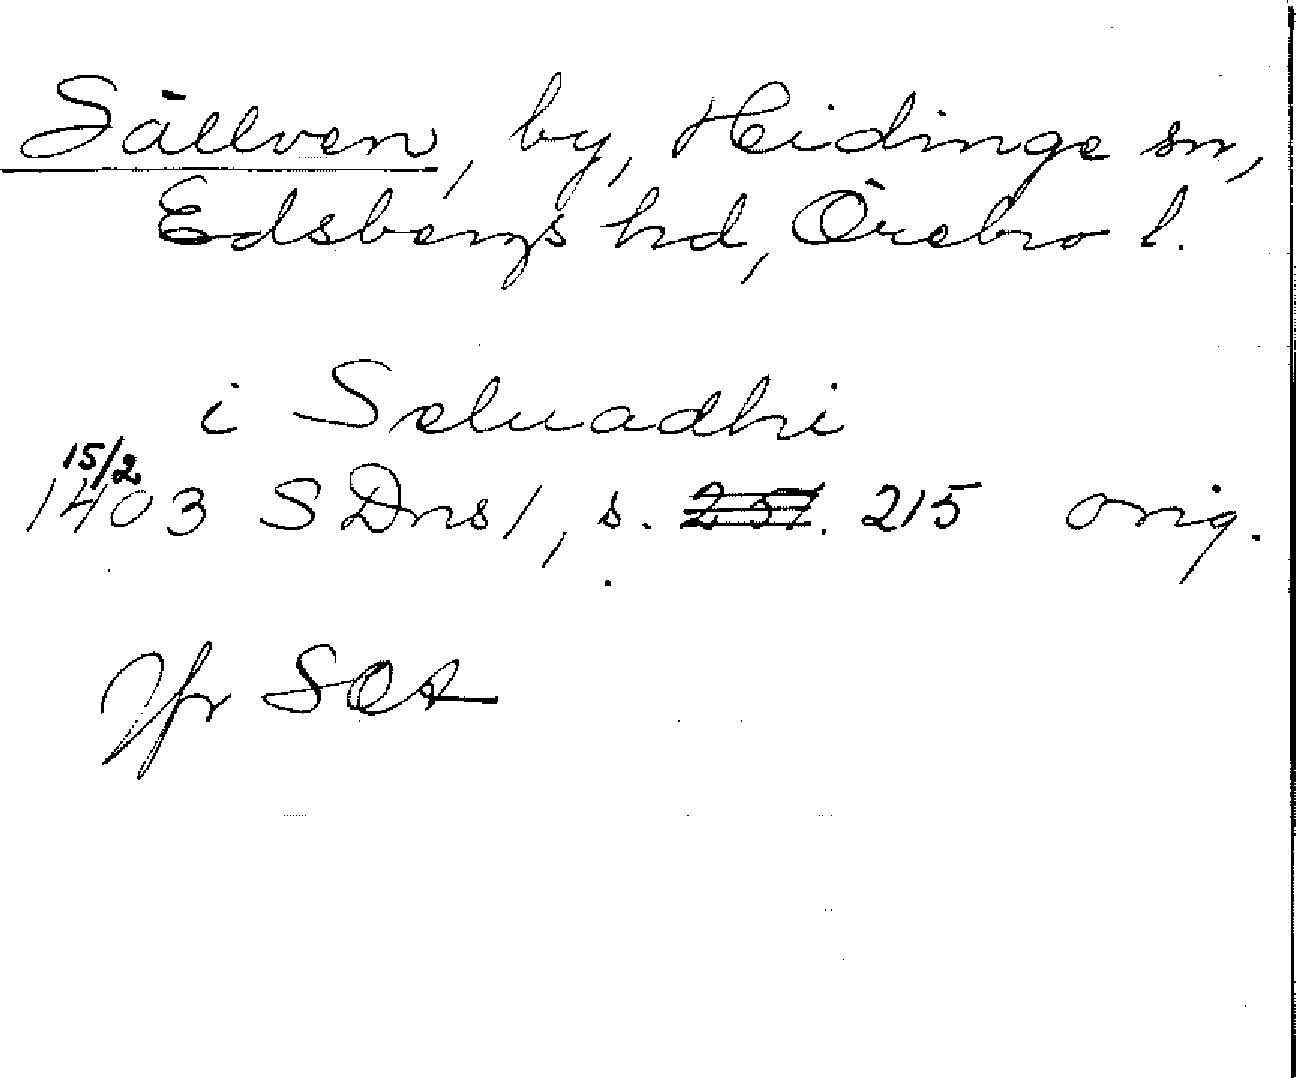 Sällven, by, Heidinge sn,
Edsbergs hd, Örebro l.
i Seluadhi
15/2
1403 SDns 1, s. 251. 215 orig.
Jfr SOA